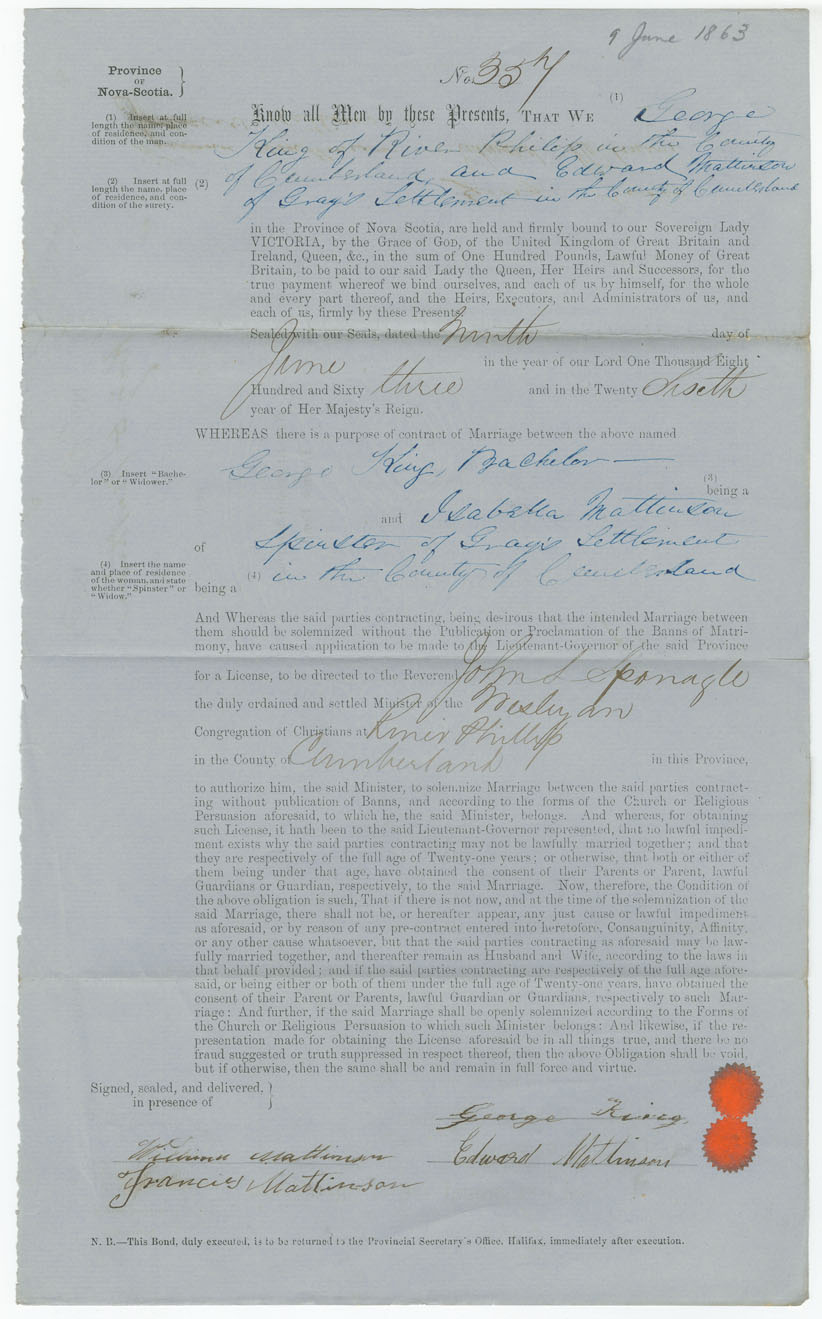 9 June 1863
Province
OF
Nova-Scotia.
No. 357
(1)
Know all Men by these Presents, THAT WE George
(1) Insert at full
length the name, place
of residence, and con-
dition of the man.
King of River Philip in the County
of Cumberland, and Edward Mattinson
(2) Insert at full
length the name, place
of residence, and con-
dition of the surety.
(2)
of Gray's Settlement in the County of Cumberland
in the Province of Nova Scotia, are held and firmly bound to our Sovereign Lady
VICTORIA, by the Grace of GOD, of the United Kingdom of Great Britain and
Ireland, Queen, &c., in the sum of One Hundred Pounds, Lawful Money of Great
Britain, to be paid to our said Lady the Queen, Her Heirs and Successors, for the
true payment whereof we bind ourselves, and each of us by himself, for the whole
and every part thereof, and the Heirs, Executors, and Administrators of us, and
each of us, firmly by these Presents.
Sealed with our Seals, dated the Ninth day of
June in the year of our Lord One Thousand Eight
Hundred and Sixty three and in the Twenty Sixth
year of Her Majesty's Reign.
WHEREAS there is a purpose of contract of Marriage between the above named
George King, Bachelor
(3) Insert "Bache-
lor" or "Widower."
(3)
being a
and Isabella Mattinson
of Spinster of Gray's Settlement
(4) Insert the name
and place of residence
of the woman, and state
whether "Spinster" or
"Widow."
being a (4) in the County of Cumberland
And Whereas the said parties contracting, being desirous that the intended Marriage between
them should be solemnized without the Publication or Proclamation of the Banns of Matri-
mony, have caused application to be made to the Lieutenant-Governor of the said Province
for a License, to be directed to the Reverend John S Sponagle
the duly ordained and settled Minister of the Wesleyan
Congregation of Christians at River Phillip
in the County of Cumberland in this Province,
to authorize him, the said Minister, to solemnize Marriage between the said parties contract-
ing without publication of Banns, and according to the forms of the Church or Religious
Persuasion aforesaid, to which he, the said Minister, belongs. And whereas, for obtaining
such License, it hath been to the said Lieutenant-Governor represented, that no lawful impedi-
ment exists why the said parties contracting may not be lawfully married together; and that
they are respectively of the full age of Twenty-one years; or otherwise, that both or either of
them being under that age, have obtained the consent of their Parents or Parent, lawful
Guardians or Guardian, respectively, to the said Marriage. Now, therefore, the Condition of
the above obligation is such, That if there is not now, and at the time of the solemnization of the
said Marriage, there shall not be, or hereafter appear, any just cause or lawful impediment
as aforesaid, or by reason of any pre-contract entered into heretofore, Consanguinity, Affinity,
or any other cause whatsoever, but that the said parties contracting as aforesaid may be law-
fully married together, and thereafter remain as Husband and Wife, according to the laws in
that behalf provided; and if the said parties contracting are respectively of the full age afore-
said, or being either or both of them under the full age of Twenty-one years, have obtained the
consent of their Parent or Parents, lawful Guardian or Guardians, respectively to such Mar-
riage: And further, if the said Marriage shall be openly solemnized according to the Forms of
the Church or Religious Persuasion to which such Minister belongs: And likewise, if the re-
presentation made for obtaining the License aforesaid be in all things true, and there be no
fraud suggested or truth suppressed in respect thereof, then the above Obligation shall be void,
but if otherwise, then the same shall be and remain in full force and virtue.
Signed, sealed, and delivered,
in presence of
George King
William Mattinson Edward Mattinson
Francis Mattinson
N. B.—This Bond, duly executed, is to be returned to the Provincial Secretary's Office, Halifax, immediately after execution.